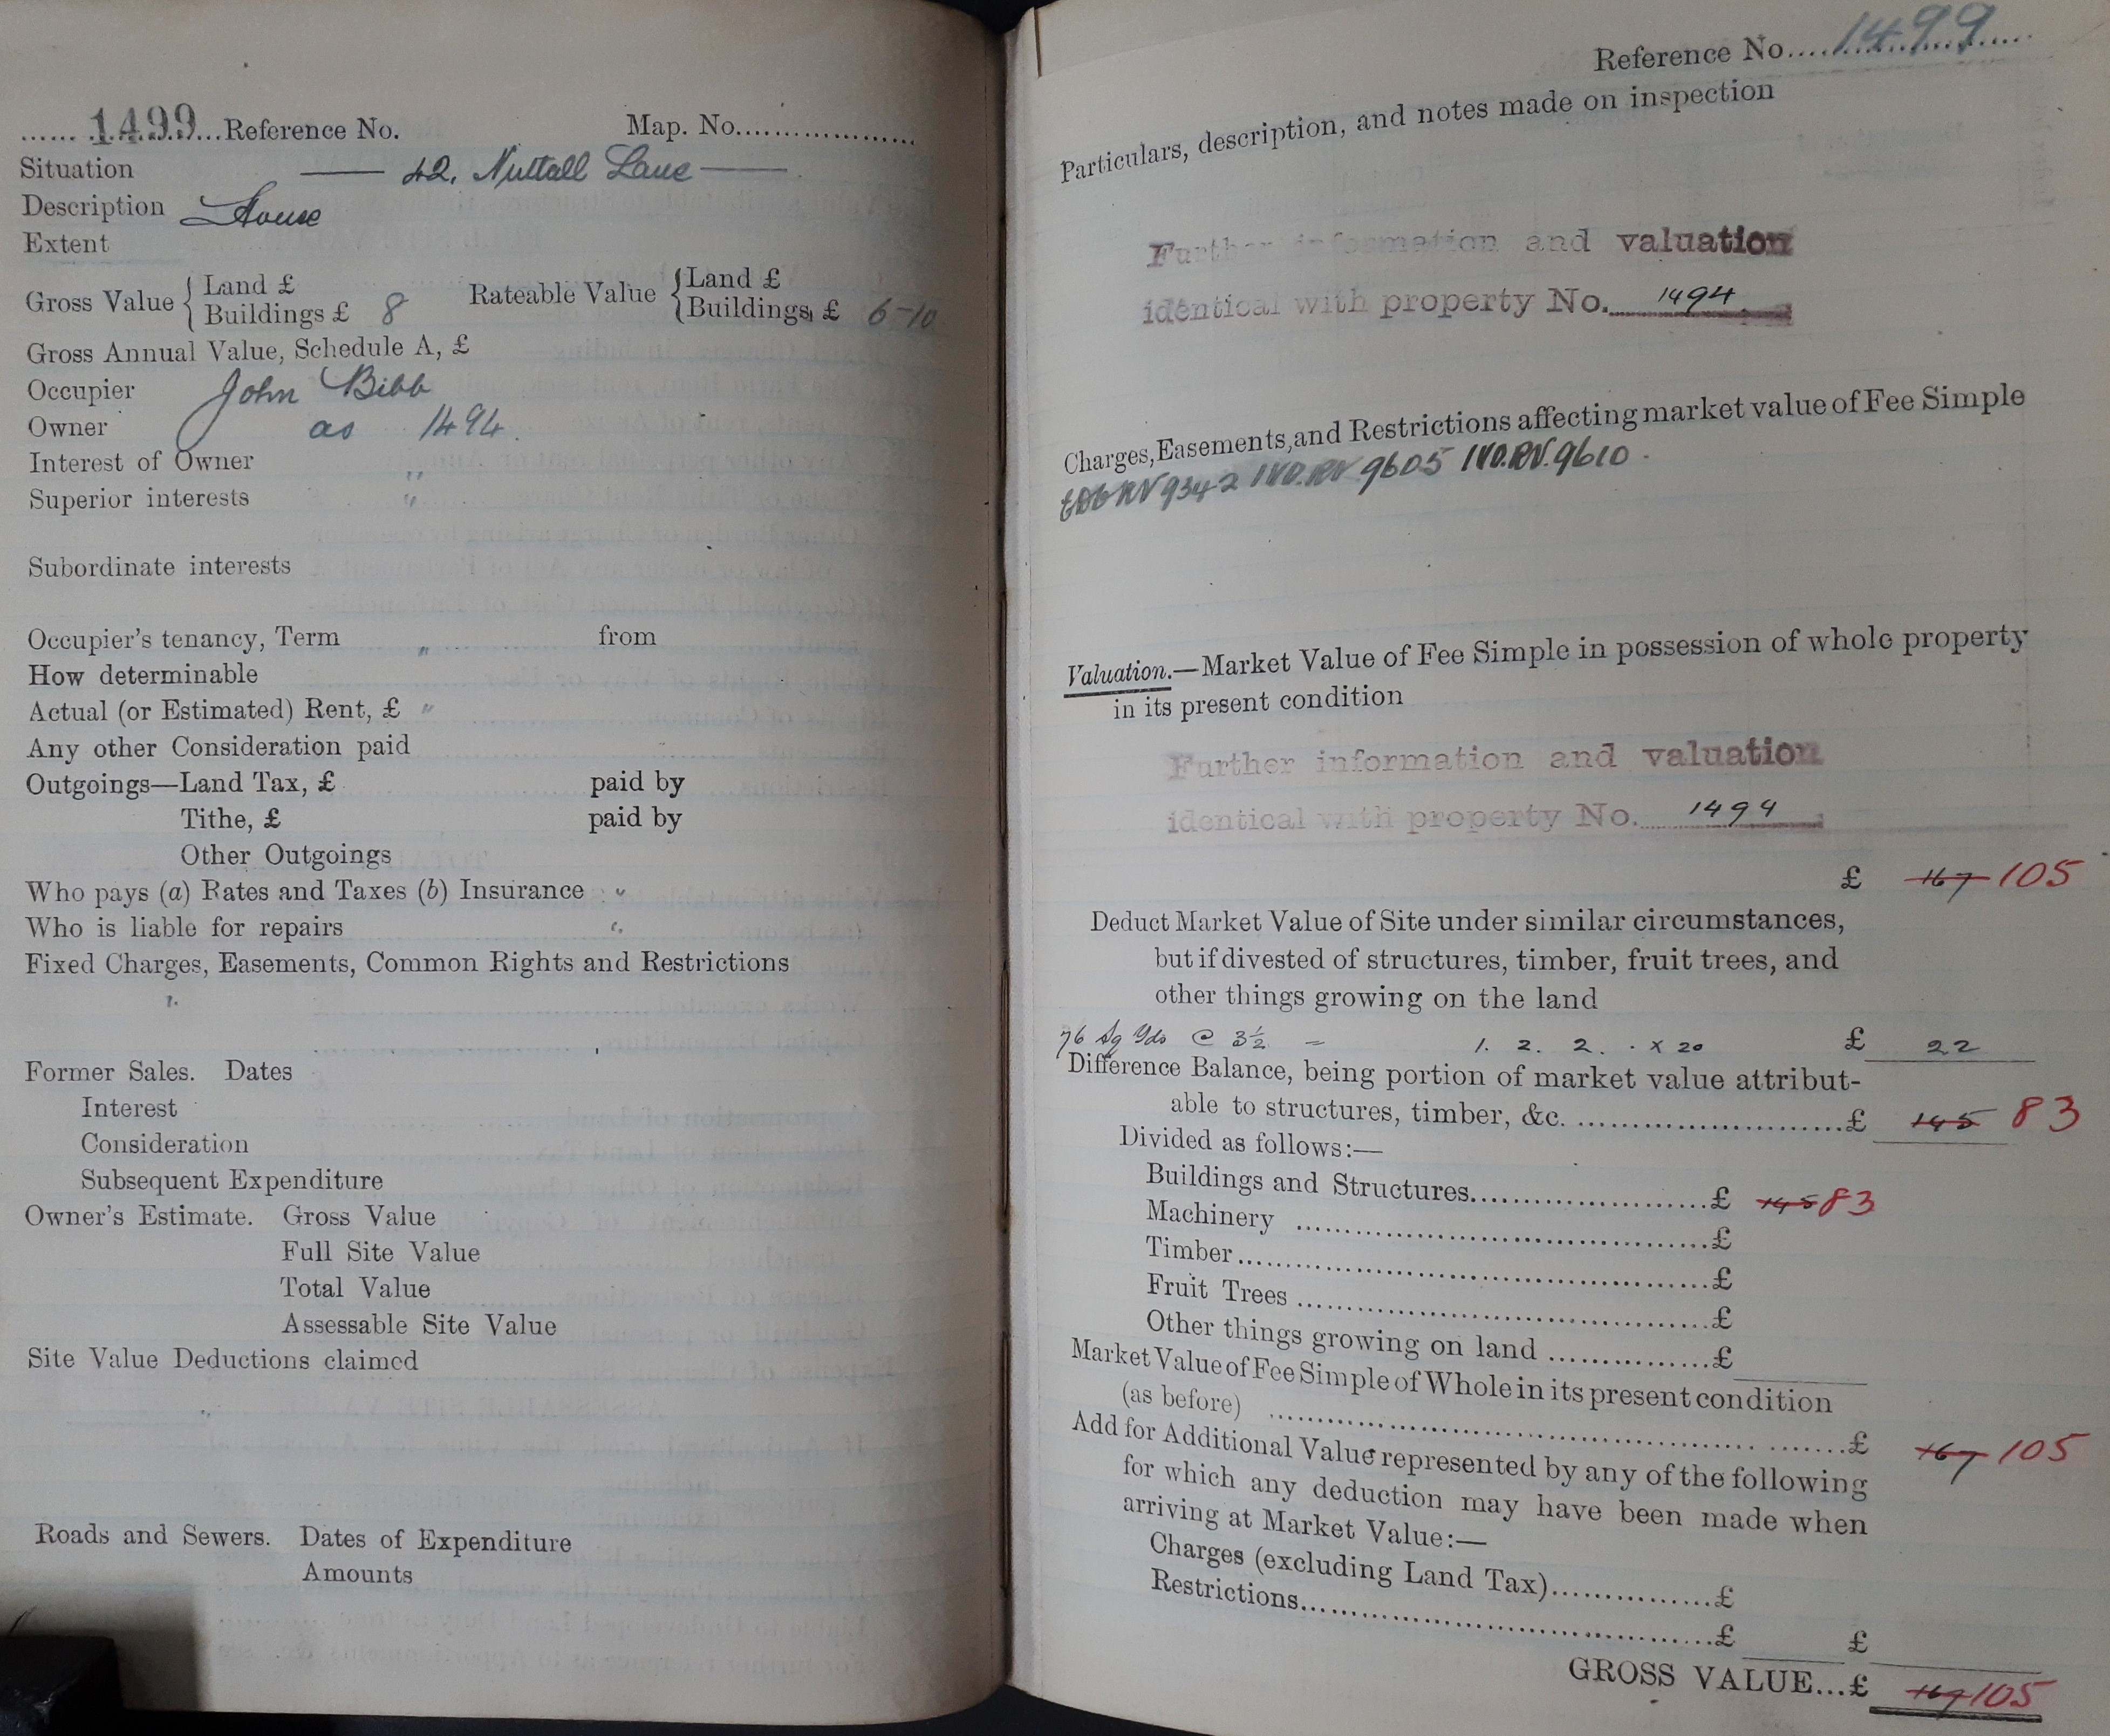 ...... 1499...Reference No. Map. No..................
Situation —— 42, Nuttall Lane ——
Description House
Extent
Gross Value { Land £ Rateable Value { Land £
Buildings £ 8 Buildings, £ 6-10
Gross Annual Value, Schedule A, £
Occupier John Bibb
Owner as 1494.
Interest of Owner "
Superior interests "
Subordinate interests
Occupier's tenancy, Term " from
How determinable
Actual (or Estimated) Rent, £ "
Any other Consideration paid
Outgoings—Land Tax, £ paid by
Tithe, £ paid by
Other Outgoings
Who pays (a) Rates and Taxes (b) Insurance "
Who is liable for repairs "
Fixed Charges, Easements, Common Rights and Restrictions
"
Former Sales. Dates
Interest
Consideration
Subsequent Expenditure
Owner's Estimate. Gross Value
Full Site Value
Total Value
Assessable Site Value
Site Value Deductions claimed
"
Roads and Sewers. Dates of Expenditure
Amounts
Reference No....1499......
Particulars, description, and notes made on inspection
Further information and valuation
identical with property No. 1494
Charges, Easements, and Restrictions affecting market value of Fee Simple
RV 9342 IVD.RV. 9605 IVD.RV. 9610.
Valuation.—Market Value of Fee Simple in possession of whole property
in its present condition
Further information and valuation
identical with property No. 1494
£ 167 105
Deduct Market Value of Site under similar circumstances,
but if divested of structures, timber, fruit trees, and
other things growing on the land
76 Sq Yds @ 3½ = 1. 2. 2. x 20 £ 22
Difference Balance, being portion of market value attribut-
able to structures, timber, &c. ...........................£ 145 83
Divided as follows:—
Buildings and Structures........................£ 145 83
Machinery .............................................£
Timber..................................................£
Fruit Trees ............................................£
Other things growing on land ................£
Market Value of Fee Simple of Whole in its present condition
(as before) ..........................................................£ 167 105
Add for Additional Value represented by any of the following
for which any deduction may have been made when
arriving at Market Value:—
Charges (excluding Land Tax)................£
Restrictions..........................................£ £
GROSS VALUE...£ 167 105